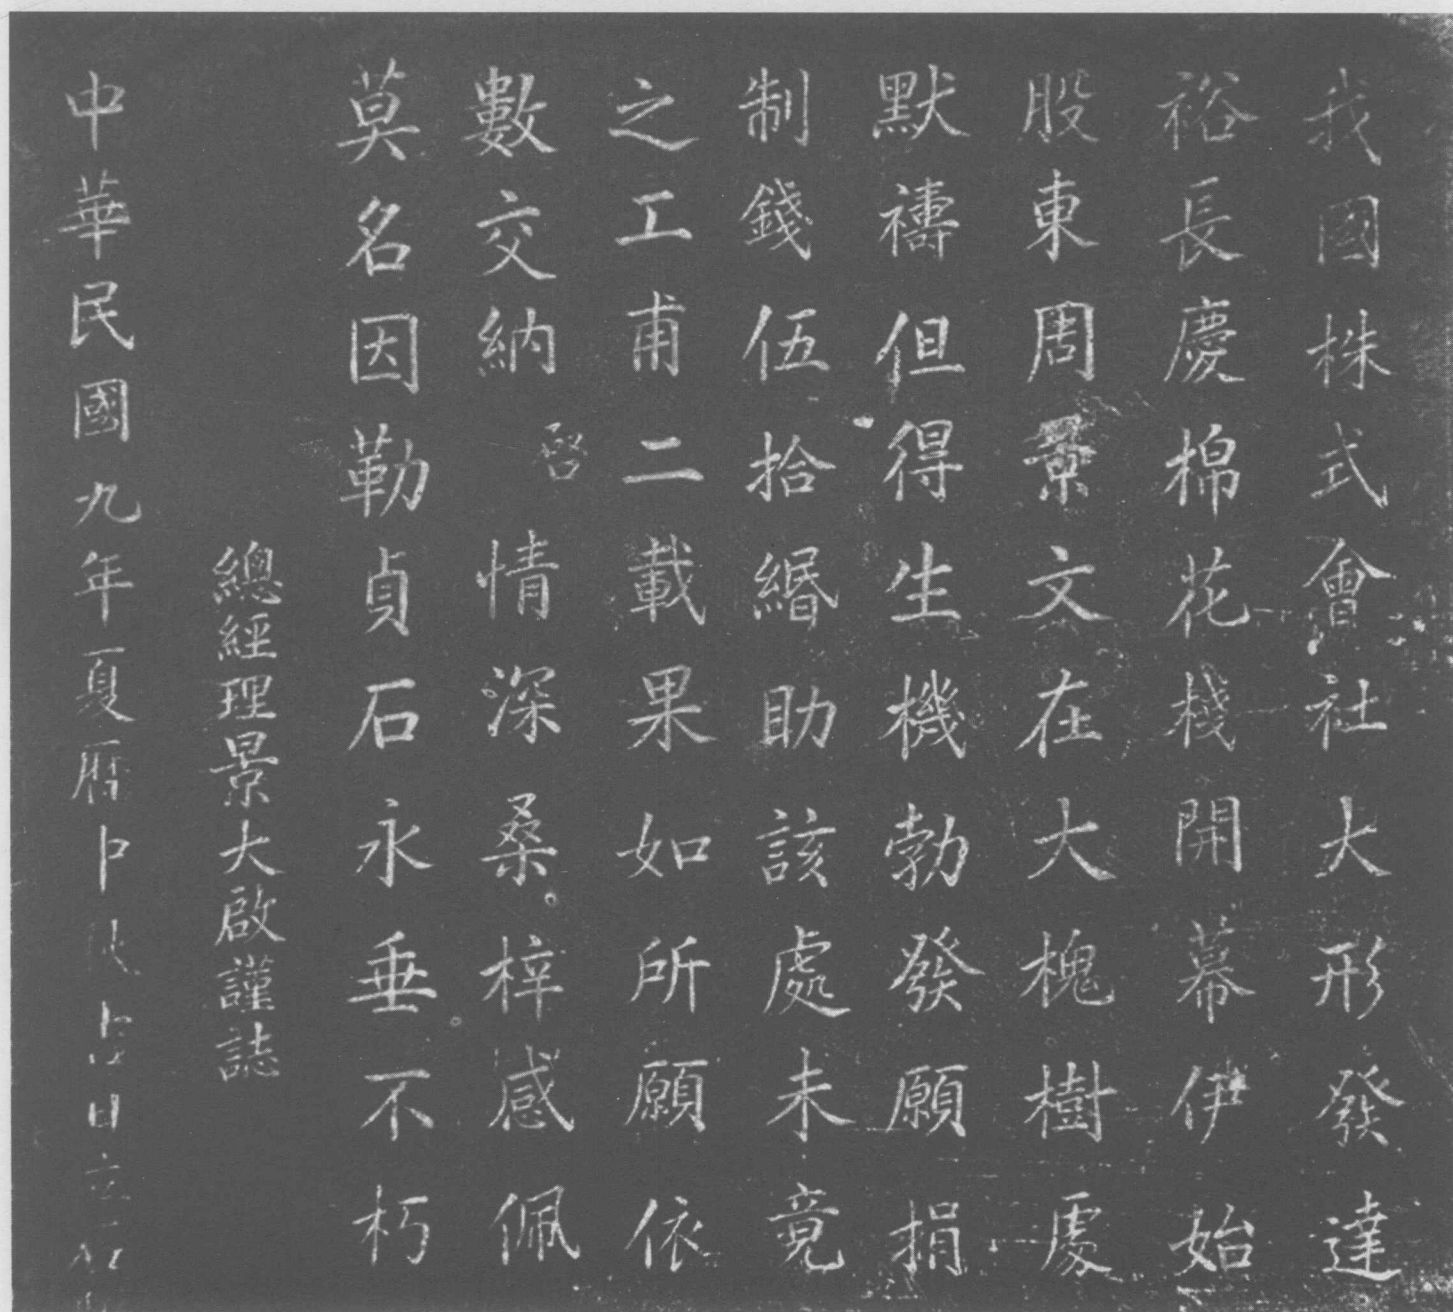 我國株式會社大形發達
裕長慶棉花棧開幕伊始
股東周景文在大槐樹處
默禱但得生機勃發願捐
制錢伍拾緡助該處未竟
之工甫二載果如所願依
數交納啓情深桑梓感佩
莫名因勒貞石永垂不朽
總經理景大啟謹誌
中華民國九年夏曆日立石